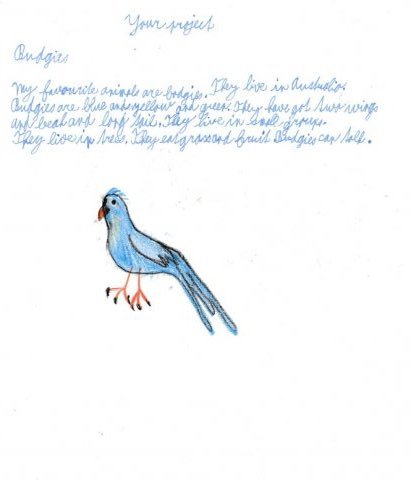 Your project
Budgies
My favourite animals are budgies. They live in Australia.
Budgies are blue and yellow and green. They have got two wings
and beak and long tail. They live in small groups.
They live in trees. They eat grass and fruit Budgies can talk.